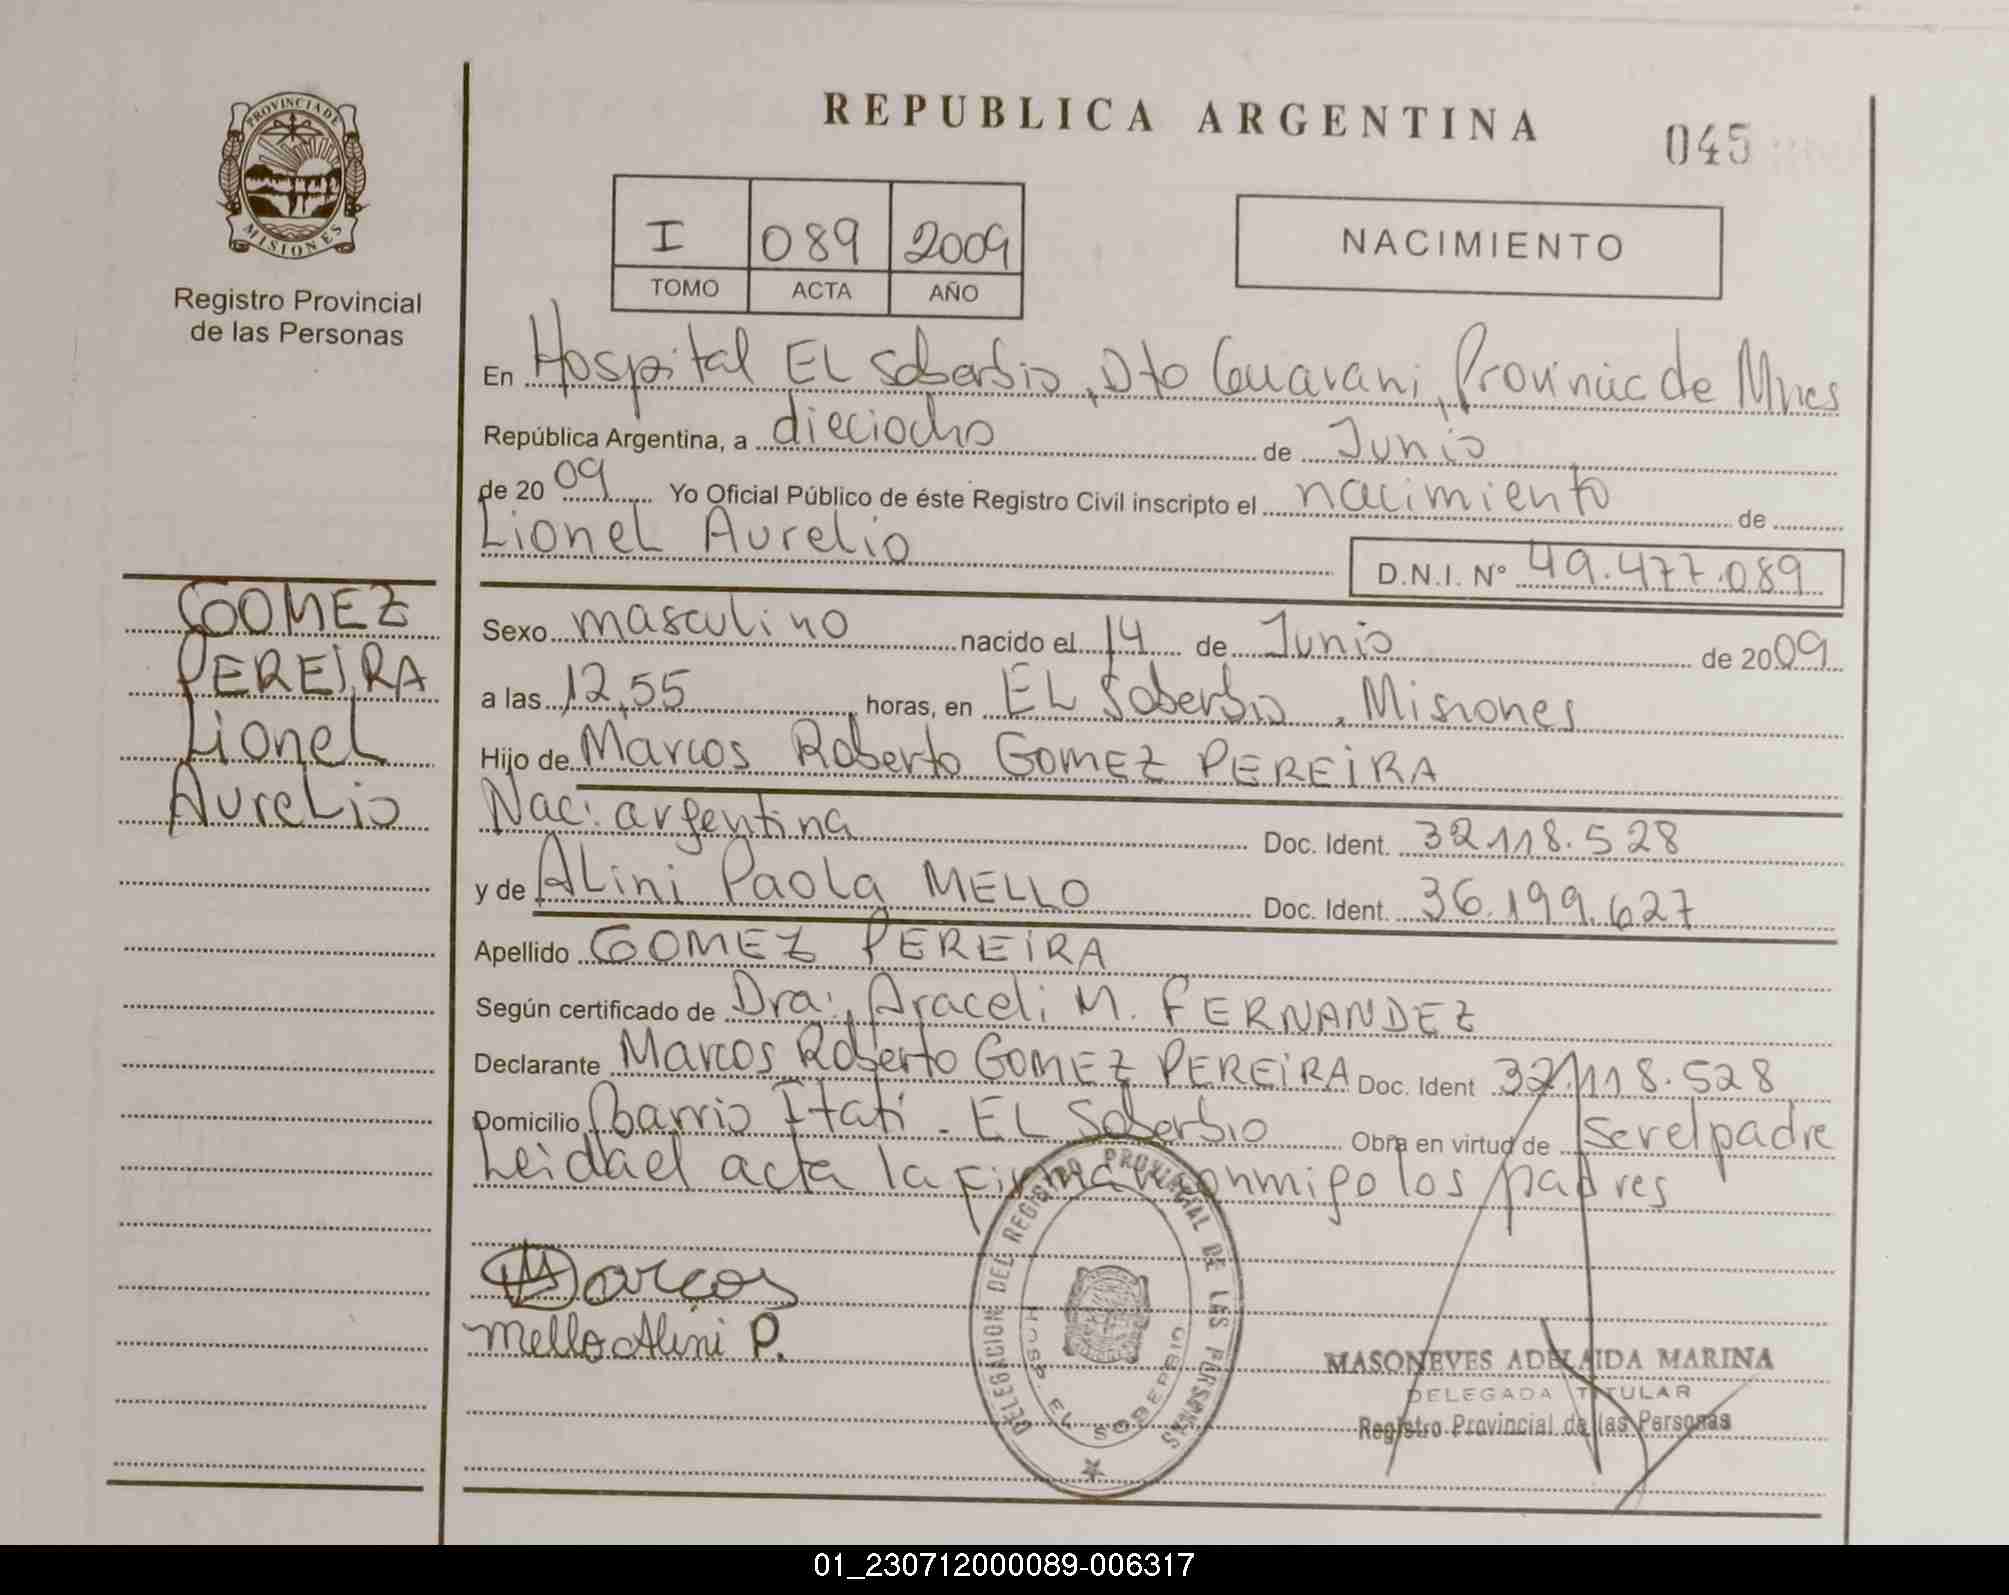 REPUBLICA ARGENTINA
045
PROVINCIA DE
MISIONES
Registro Provincial
de las Personas
I 089 2009
TOMO ACTA AÑO
NACIMIENTO
En Hospital EL Soberbio, Dto Guarani, Provincia de Mnes
República Argentina, a dieciocho de Junio
de 2009 Yo Oficial Público de éste Registro Civil inscripto el nacimiento de
Lionel Aurelio
D.N.I. Nº 49.477.089
GOMEZ
PEREIRA
Lionel
Aurelio
Sexo masculino nacido el 14 de Junio de 2009
a las 12,55 horas, en EL Soberbio, Misiones
Hijo de Marcos Roberto GOMEZ PEREIRA
Nac: argentina Doc. Ident. 32.118.528
y de ALini Paola MELLO Doc. Ident. 36.199.627
Apellido GOMEZ PEREIRA
Según certificado de Dra: Araceli M. FERNANDEZ
Declarante Marcos Roberto GOMEZ PEREIRA Doc. Ident 32.118.528
Domicilio Barrio Itati - EL Soberbio Obra en virtud de ser el padre
Leida el acta la firman conmigo los padres
Marcos
Mello Alini P.
DELEGACION DEL REGISTRO PROVINCIAL DE LAS PERSONAS
HOSP. EL SOBERBIO
MASONEVES ADELAIDA MARINA
DELEGADA TITULAR
Registro Provincial de las Personas
01_230712000089-006317